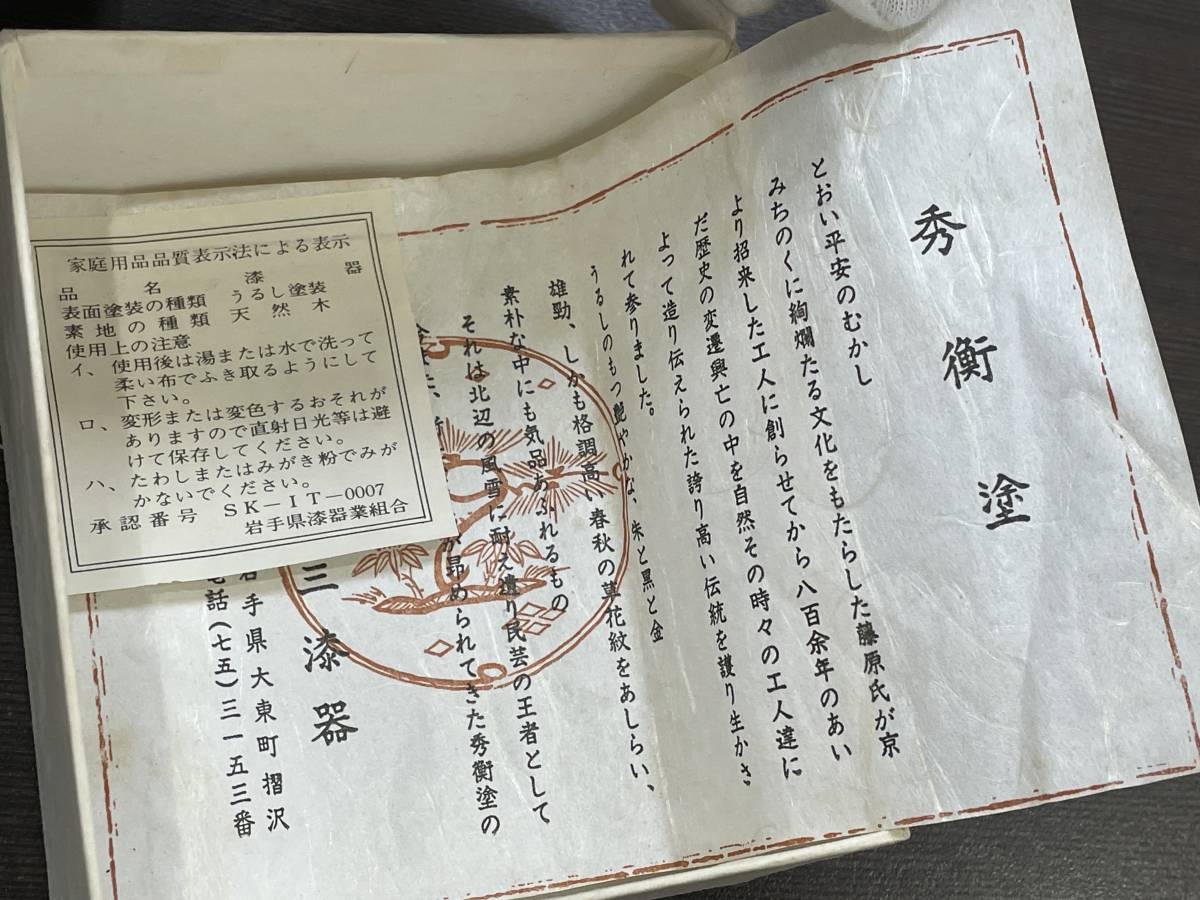 秀衡塗
とおい平安のむかし
みちのくに絢爛たる文化をもたらした藤原氏が京
より招来した工人に創らせてから八百余年のあい
だ歴史の変遷興亡の中を自然その時々の工人達に
よって造り伝えられた誇り高い伝統を護り生かさ
れて参りました。
うるしのもつ艶やかな、朱と黒と金
雄勁、しかも格調高い春秋の草花紋をあしらい、
素朴な中にも気品あふれるもの
それは北辺の風雪に耐え遺り民芸の王者として
が昂められてきた秀衡塗の
三漆器
岩手県大東町摺沢
電話(七五)三一五三番
家庭用品品質表示法による表示
品名 漆器
表面塗装の種類 うるし塗装
素地の種類 天然木
使用上の注意
イ、使用後は湯または水で洗って
柔い布でふき取るようにして
下さい。
ロ、変形または変色するおそれが
ありますので直射日光等は避
けて保存してください。
ハ、たわしまたはみがき粉でみが
かないでください。
承認番号 SK-IT-0007
岩手県漆器業組合